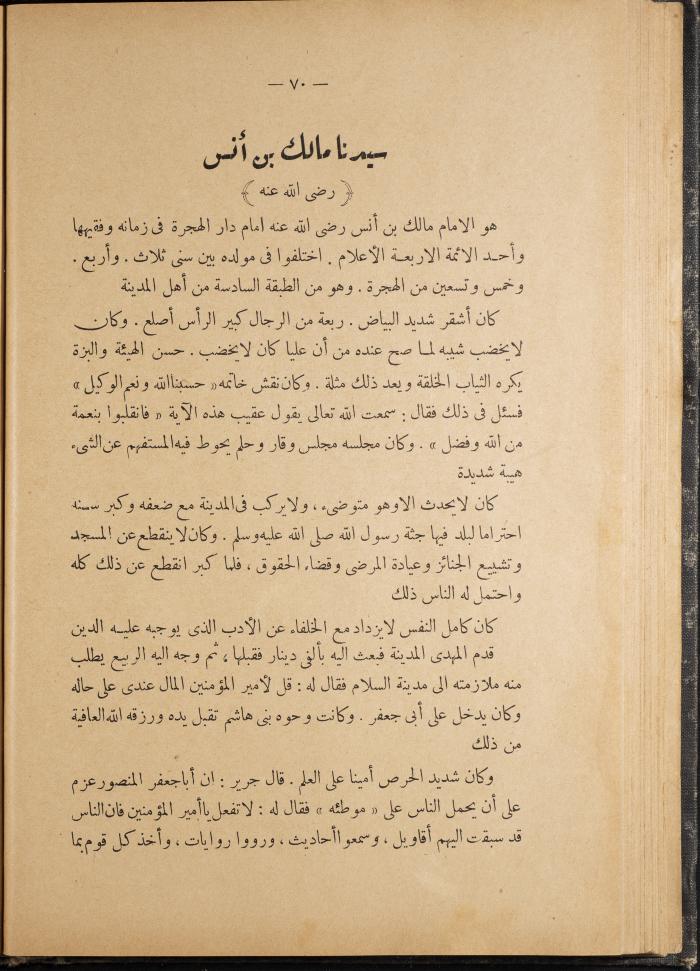 — ٧٠ —
سيدنا مالك بن أنس
﴿ رضى الله عنه ﴾
هو الامام مالك بن أنس رضى الله عنه امام دار الهجرة فى زمانه وفقيهها
وأحد الائمة الاربعة الأعلام . اختلفوا فى مولده بين سنى ثلاث . وأربع .
وخمس وتسعين من الهجرة . وهو من الطبقة السادسة من أهل المدينة
كان أشقر شديد البياض . ربعة من الرجال كبير الرأس أصلع . وكان
لايخضب شيبه لما صح عنده من أن عليا كان لايخضب . حسن الهيئة والبزة
يكره الثياب الخلقة ويعد ذلك مثلة . وكان نقش خاتمه « حسبنا الله ونعم الوكيل »
فسئل فى ذلك فقال : سمعت الله تعالى يقول عقيب هذه الآية « فانقلبوا بنعمة
من الله وفضل » . وكان مجلسه مجلس وقار وحلم يحوط فيه المستفهم عن الشىء
هيبة شديدة
كان لايحدث الا وهو متوضىء ، ولايركب فى المدينة مع ضعفه وكبر سنه
احتراما لبلد فيها جثة رسول الله صلى الله عليه وسلم . وكان لاينقطع عن المسجد
وتشييع الجنائز وعيادة المرضى وقضاء الحقوق ، فلما كبر انقطع عن ذلك كله
واحتمل له الناس ذلك
كان كامل النفس لايزداد مع الخلفاء عن الأدب الذى يوجبه عليه الدين
قدم المهدى المدينة فبعث اليه بألفى دينار فقبلها ، ثم وجه اليه الربيع يطلب
منه ملازمته الى مدينة السلام فقال له : قل لأمير المؤمنين المال عندى على حاله
وكان يدخل على أبى جعفر . وكانت وجوه بنى هاشم تقبل يده ورزقه الله العافية
من ذلك
وكان شديد الحرص أمينا على العلم . قال جرير : ان أباجعفر المنصور عزم
على أن يحمل الناس على « موطئه » فقال له : لا تفعل ياأمير المؤمنين فان الناس
قد سبقت اليهم أقاويل ، وسمعوا أحاديث ، ورووا روايات ، وأخذ كل قوم بما